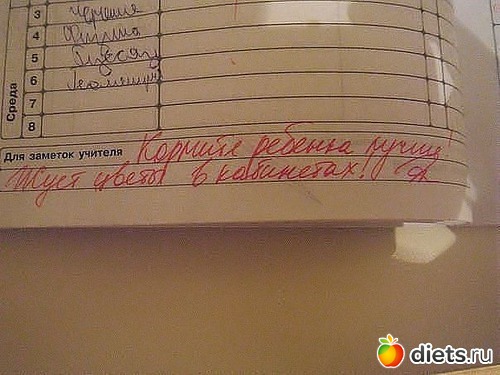 Среда
3
4 Физика
5
6 геометрия
7
8
Для заметок учителя Кормите ребенка лучше!
Жует цветы в кабинетах!
diets.ru